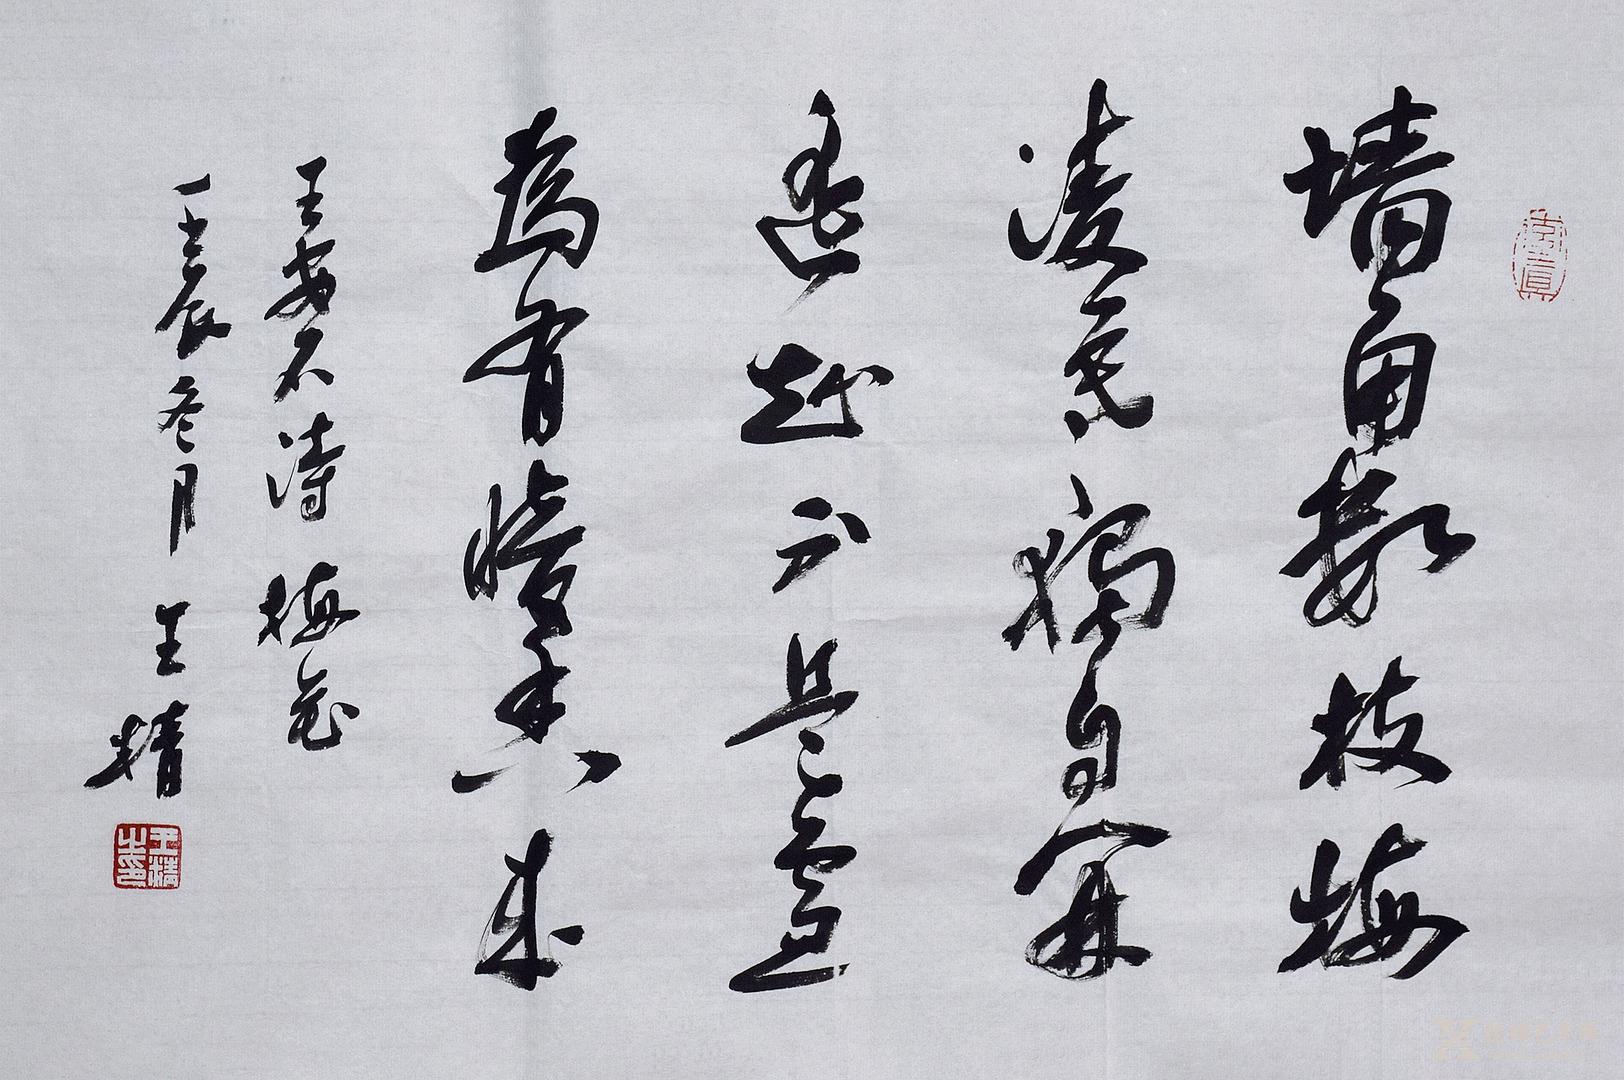 墙角数枝梅
凌寒獨自開
遥知不是雪
為有暗香来
王安石诗 梅花
壬辰冬月 王精
王精之印